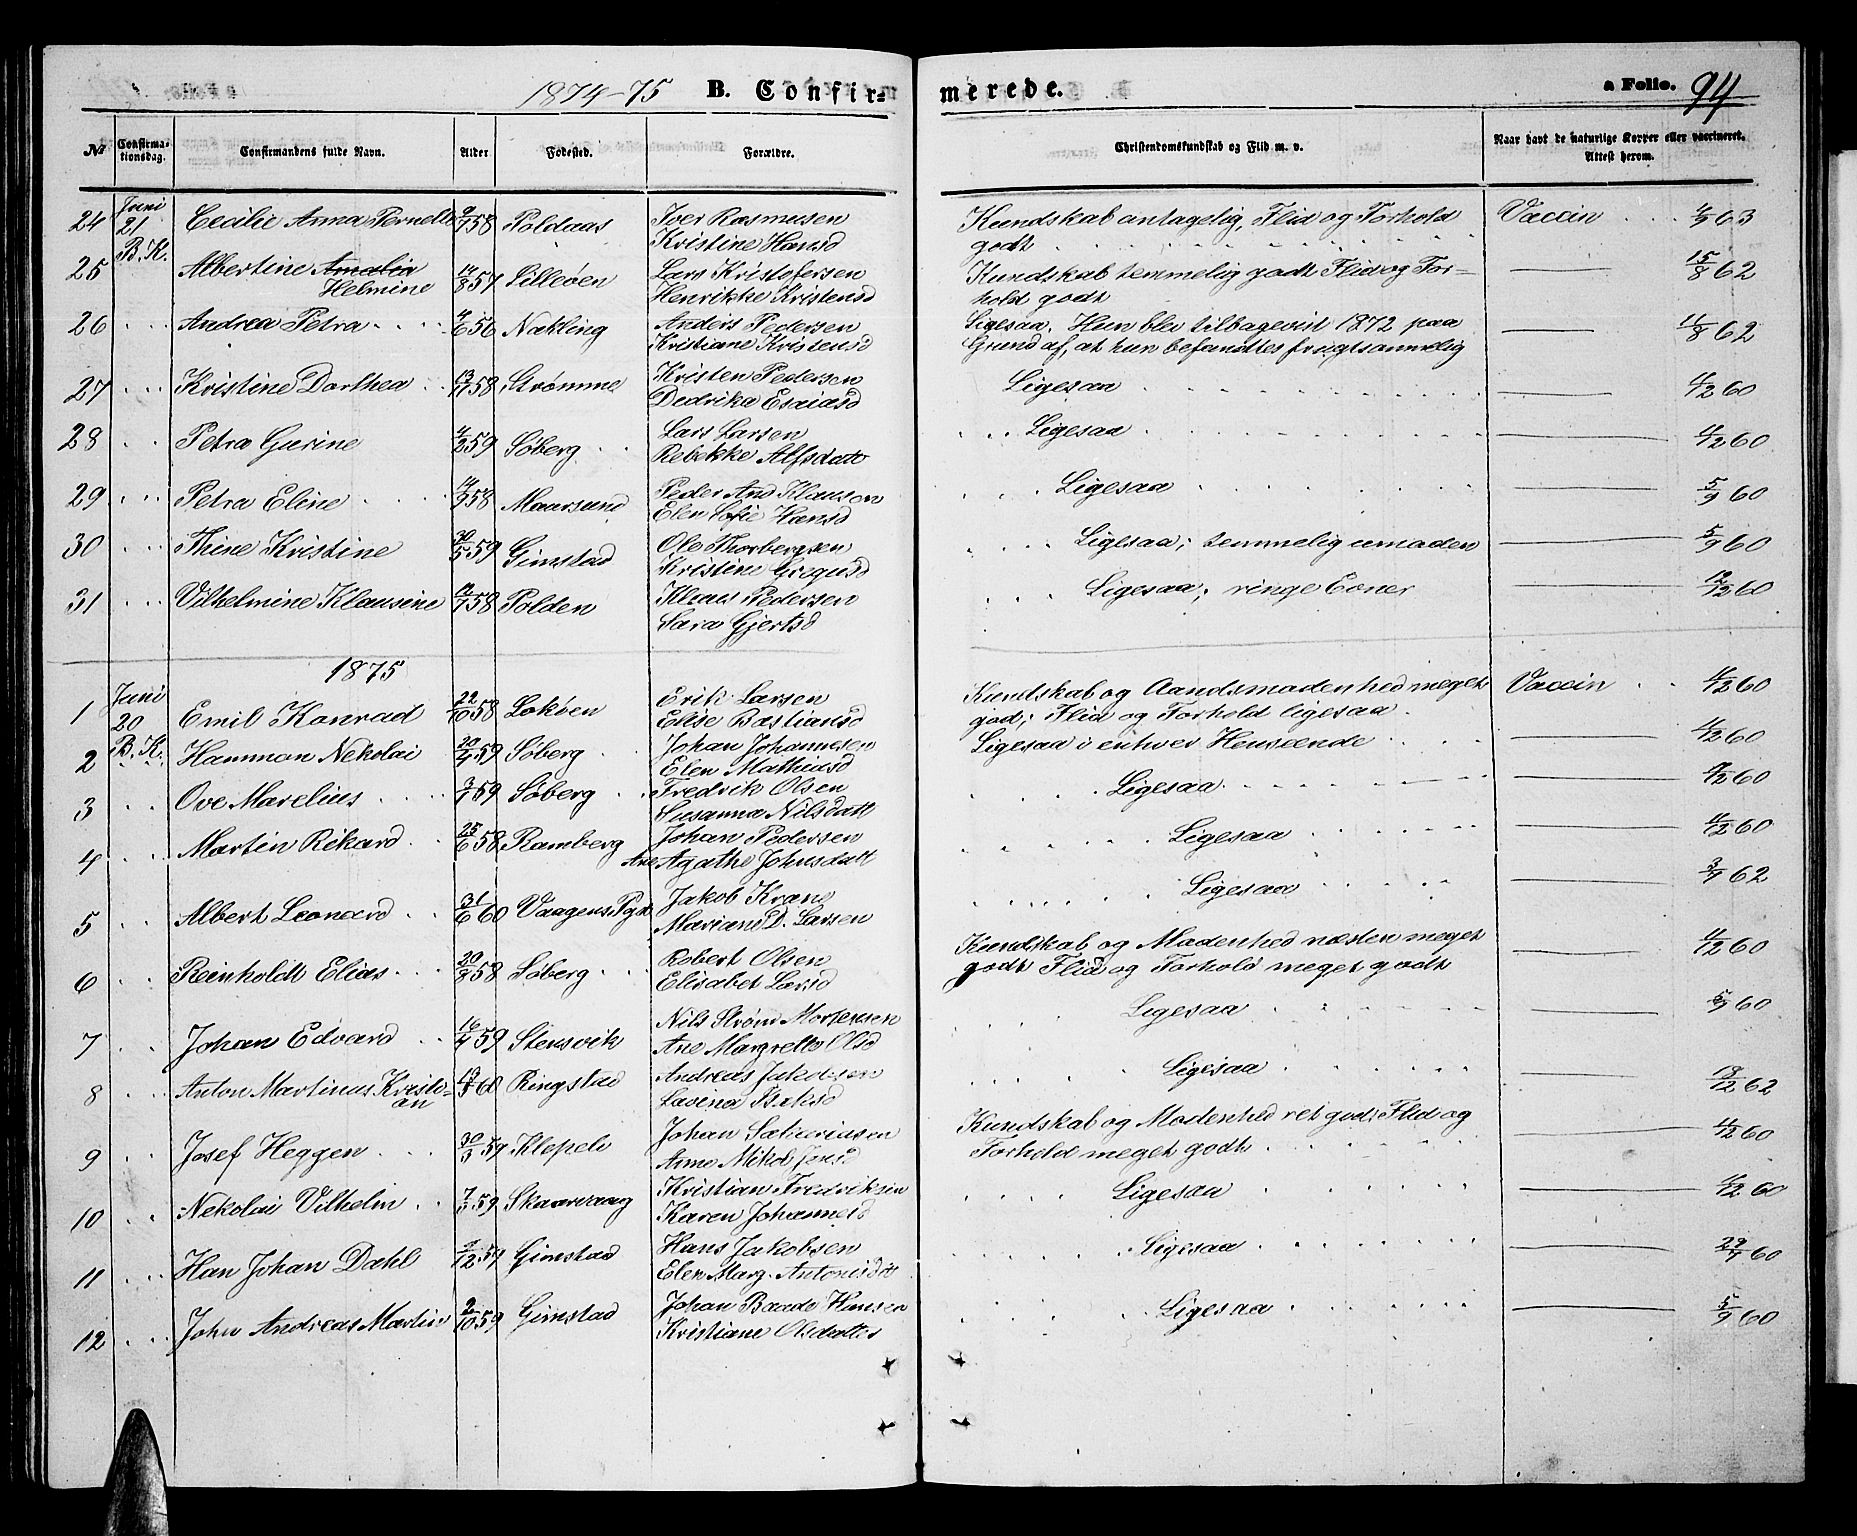 1874-75 B. Confirmerede. a Folio. 94
No Confirmationsdag. Confirmandens fulde Navn. Alder Fødested. Forældre. Christendomskundskab og Flid m. v. Naar havt de naturlige Kopper eller vaccineret. Attest herom.
24 Juni 21 Cecilie Anna Pernelle 58 Poldaas Iver Rasmusen Kundskab antagelig, Flid og Forhold Vaccin 63
B.K. Kristine Hansd godt
25 Albertine Amalia 14/8 57 Lilleøen Lars Kristofersen Kundskab temmelig godt Flid og For- 15/8 62
Helmine Henrikke Kristensd hold godt
26 Andrea Petra 56 Nækling Anders Pedersen Ligesaa. Hun blev tilbagevist 1872 paa 11/8 62
Kristiane Kristensd Grund af, at hun befandttes frugtsommelig
27 Kristine Dorthea 58 Strømme Kristen Pedersen Ligesaa 4/12 60
Dedrika Esaiasd
28 Petra Gurine 4/2 59 Søberg Lars Larsen Ligesaa 4/12 60
Rebekke Alfsdatt
29 Petra Eline 58 Maursund Peder And Klausen Ligesaa 5/9 60
Elen Sofie Hansd
30 Thine Kristine 30/5 59 Gimstad Ole Thorbergsen Ligesaa; temmelig umoden 5/9 60
Kristine Gregusd
31 Vilhelmine Klausine 58 Polden Klaus Pedersen Ligesaa; ringe Evner 12/12 60
Sara Gjertsd
1875
1 Juni 20 Emil Konrad 22/10 58 Lokøen Erik Larsen Kundskab og Aandsmodenhed meget Vaccin 4/12 60
Elise Bastiansd god; Flid og Forhold ligesaa.
2 B.K. Hammon Nekolai 20/4 59 Søberg Johan Johannesen Ligesaa i enhver Henseende 4/12 60
Elen Mathiasd
3 Ove Marelius 59 Søberg Fredrik Olsen Ligesaa 4/12 60
Susanna Nilsdatt
4 Martin Rikard 25/6 58 Ramberg Johan Pedersen Ligesaa 4/12 60
Ane Agathe Johnsdatt
5 Albert Leonard 31/6 60 Vaagens Pgd Jakob Krane Ligesaa 62
Mariane D. Larsen
6 Reinholdt Elias 58 Søberg Robert Olsen Kundskab og Modenhed næsten meget 4/12 60
Elisabet Larsd godt Flid og Forhold meget godt
7 Johan Edvard 16/4 59 Stensvik Nils Strøm Mortensen Ligesaa 5/9 60
Ane Margrethe Olsd
8 Anton Martinus Kristi- 60 Ringstad Andreas Jakobsen Ligesaa 18/12 62
an Lavina Isaksd
9 Josef Heggen 30/3 59 Klepele Johan Sakariasen Kundskab og Modenhed ret god; Flid og 4/12 60
Anne Mikal Jensd Forhold meget godt
10 Nekolai Vilhelm 59 Skaarvaag Kristian Fredriksen Ligesaa 4/12 60
Karen Johannesd
11 Han Johan Dahl 59 Gimstad Hans Jakobsen Ligesaa 60
Elen Marg. Antonisdtt
12 John Andreas Martin 2/10 59 Gimstad Johan Baade Hansen Ligesaa 5/9 60
Kristiane Olsdatter